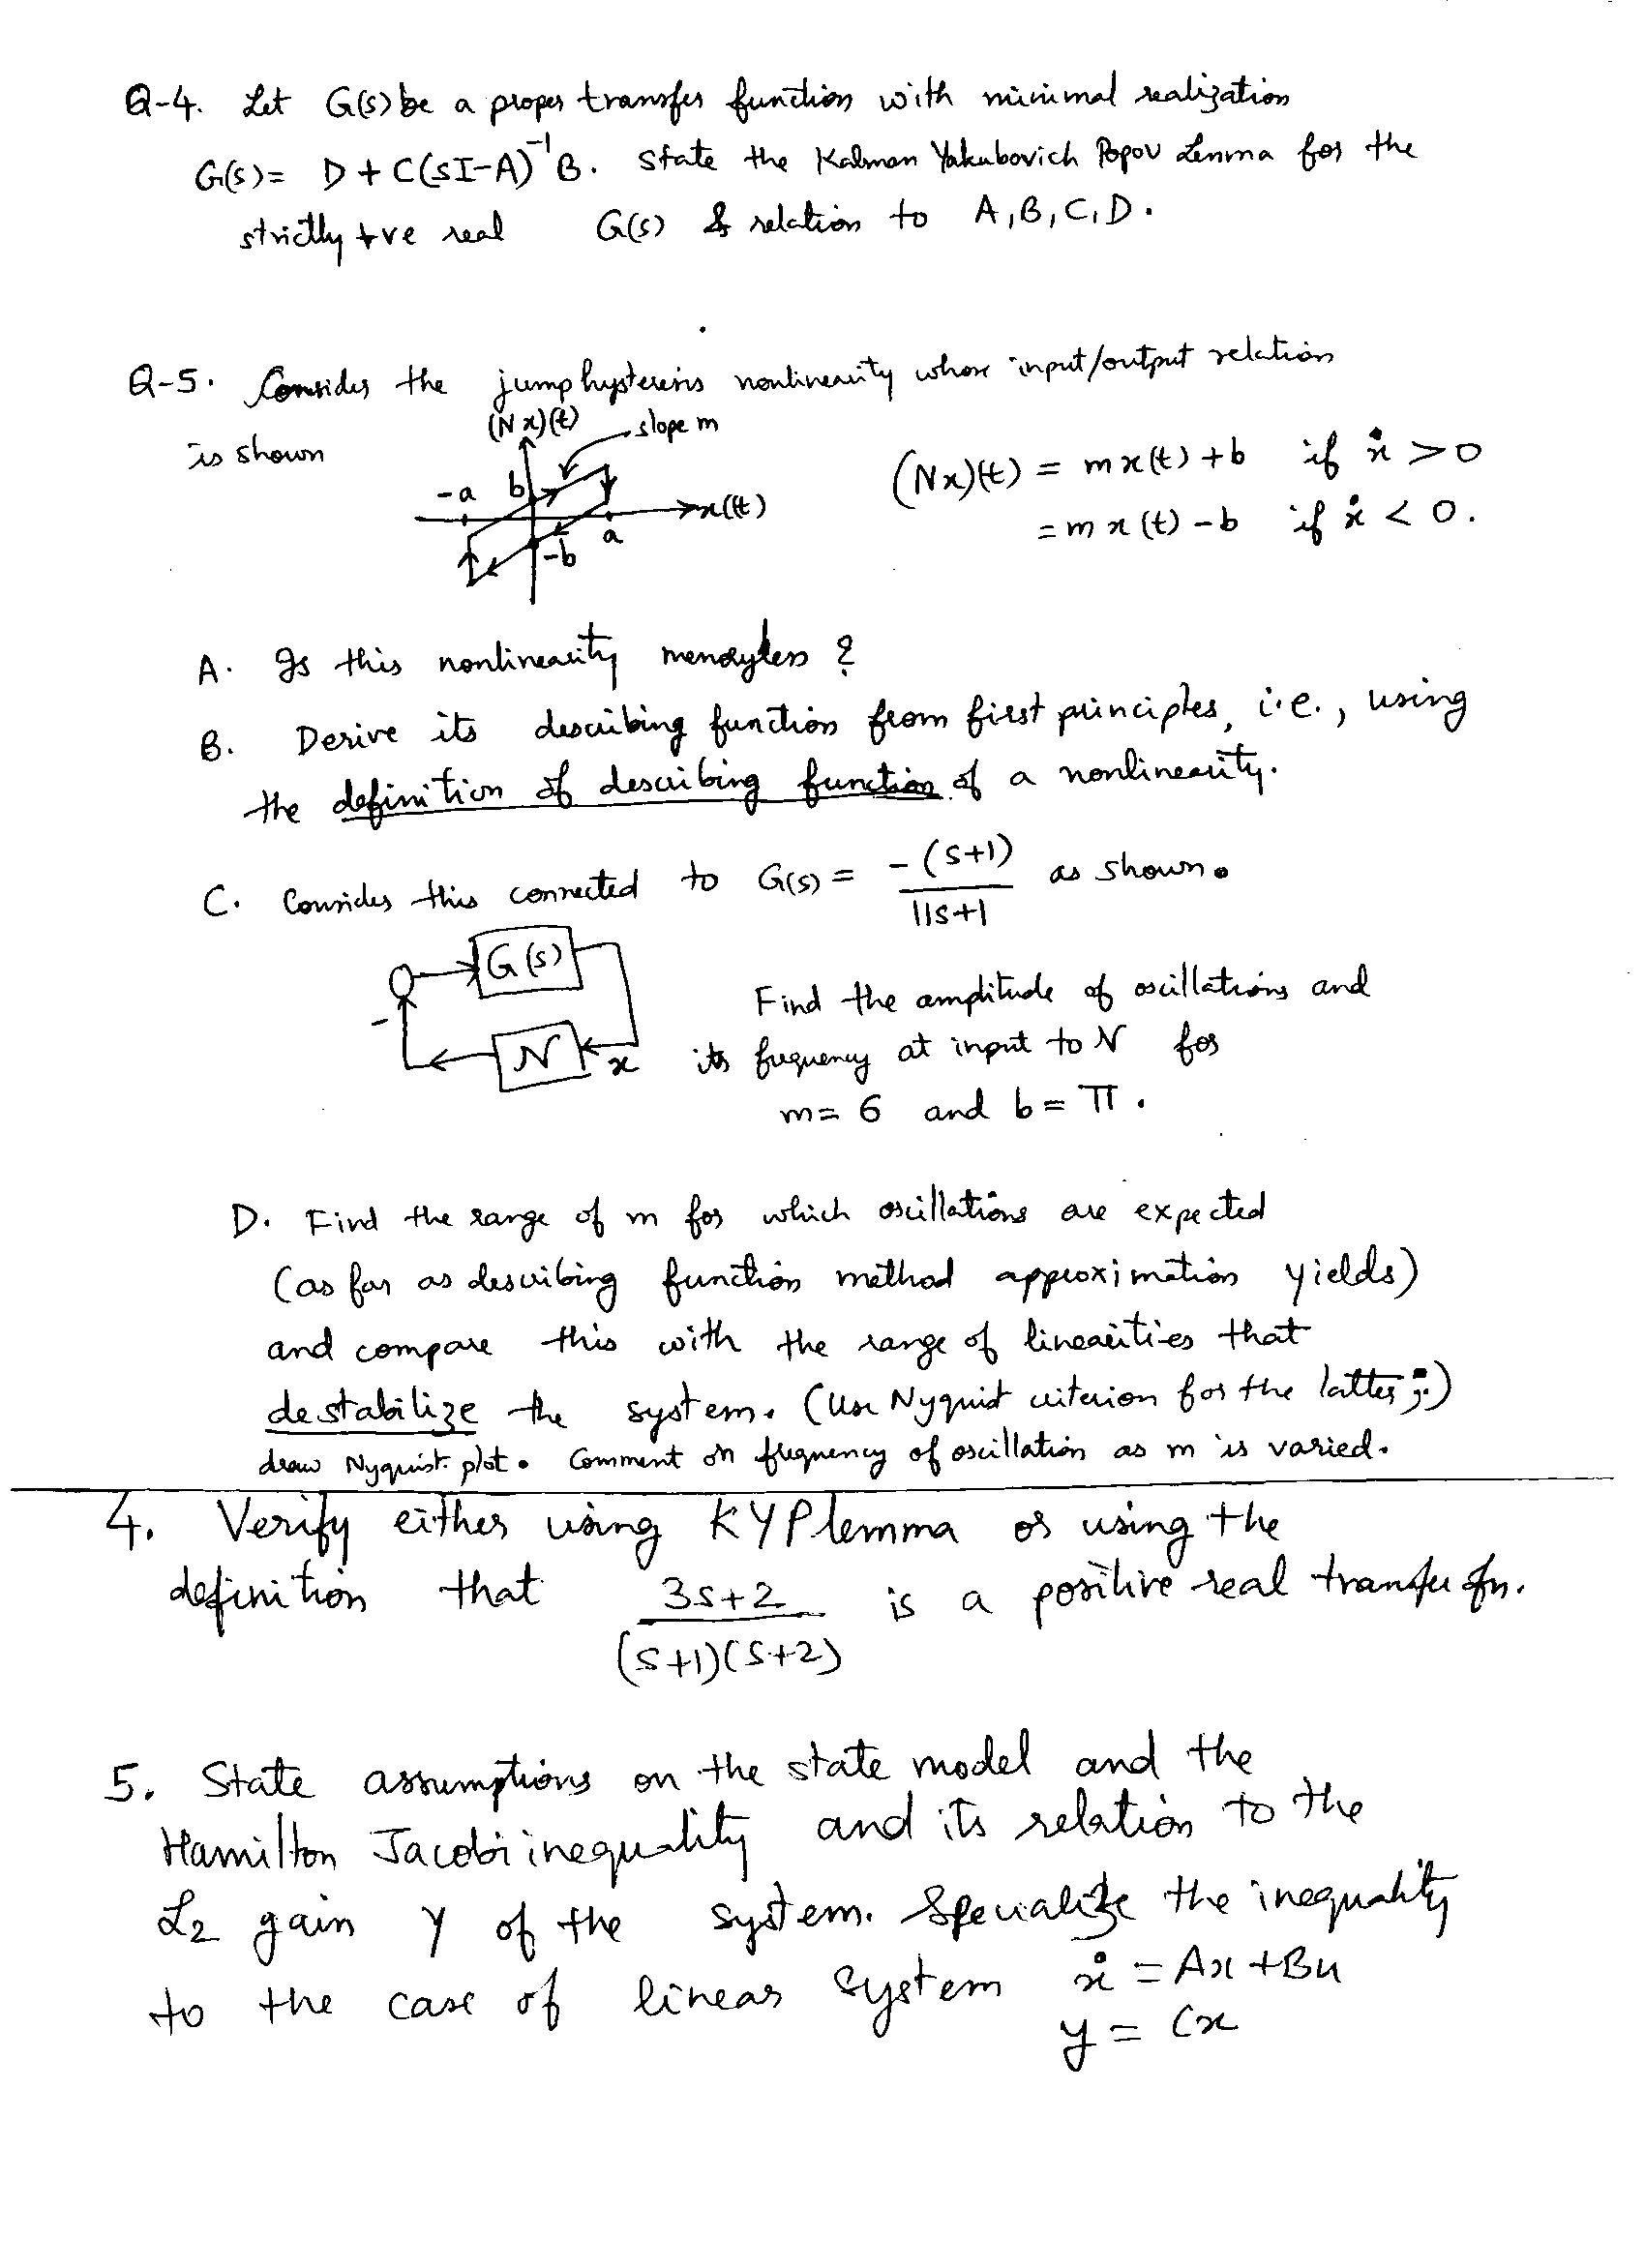 Q-4. Let G(s) be a proper transfer function with minimal realization
G(s) = D + C(sI-A)^-1 B. State the Kalman Yakubovich Popov Lemma for the
strictly +ve real G(s) & relation to A, B, C, D.
Q-5. Consider the jump hysteresis nonlinearity whose input/output relation
is shown
(Nx)(t)
slope m
-a
b
x(t)
a
-b
(Nx)(t) = mx(t) + b if ẋ > 0
= mx(t) - b if ẋ < 0.
A. Is this nonlinearity memoryless?
B. Derive its describing function from first principles, i.e., using
the definition of describing function of a nonlinearity.
C. Consider this connected to G(s) = -(s+1) / 11s+1 as shown.
G(s)
-
N
x
Find the amplitude of oscillations and
its frequency at input to N for
m = 6 and b = π.
D. Find the range of m for which oscillations are expected
(as far as describing function method approximation yields)
and compare this with the range of linearities that
destabilize the system. (Use Nyquist criterion for the latter;)
draw Nyquist plot. Comment on frequency of oscillation as m is varied.
4. Verify either using KYP lemma or using the
definition that 3s+2 / (s+1)(s+2) is a positive real transfer fn.
5. State assumptions on the state model and the
Hamilton Jacobi inequality and its relation to the
L2 gain γ of the system. Specialize the inequality
to the case of linear system ẋ = Ax + Bu
y = Cx